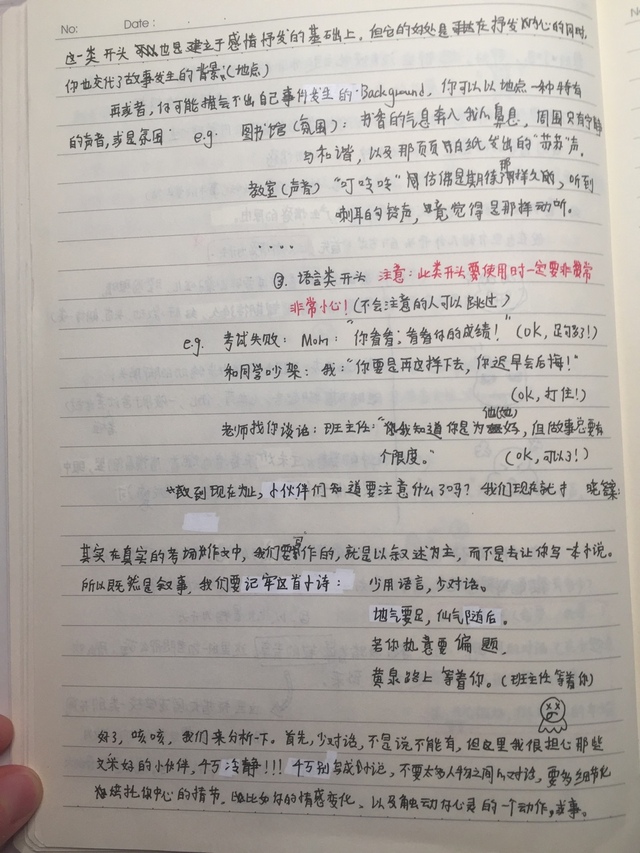 No:
Date:
这一类开头 也是建立于感情抒发的基础上，但它的好处是在抒发内心的同时，
你也交代了故事发生的背景。(地点)
再或者，你可能描绘不出自己事件发生的Background，你可以以地点一种特有
的声音，或是氛围 e.g. 图书馆(氛围)：书香的气息奔入我的鼻息，周围只有宁静
与和谐，以及那页页白纸发出的“莎莎”声。
教室(声音) “叮咚咚”仿佛是期待那样久的，听到
喇耳的铃声，竟觉得是那样动听。
....
③. 语言类开头 注意：此类开头要使用时一定要非常
非常小心！(不会注意的人可以跳过)
e.g. 考试失败：Mom：“你看看；看看你的成绩！” (ok，足够了！)
和同学吵架：我：“你要是再这样下去，你迟早会后悔！”
(ok，打住！)
老师找你谈话：班主任：“我知道你是为他(她)好，但做事总要有
个限度。” (ok，可以了！)
“故到现在为止，小伙伴们知道要注意什么了吗？我们现在就才
其实在真实的考场作文中，我们要写作的，就是以叙述为主，而不是去让你写一本小说。
所以既然是叙事，我们要记牢这首小诗： 少用语言，少对话。
地气要足，仙气随后。
若你执意要偏题，
黄泉路上等着你。(班主任等着你)
好了，咳咳，我们来分析一下。首先，少对话，不是说不能有，但这里我很担心那些
文采好的小伙伴，千万冷静！！！千万别写成小说，不要太多人物之间的对话，要多细节化
烘托你中心的情节。比如你的情感变化，以及触动你心灵的一个动作，或事。